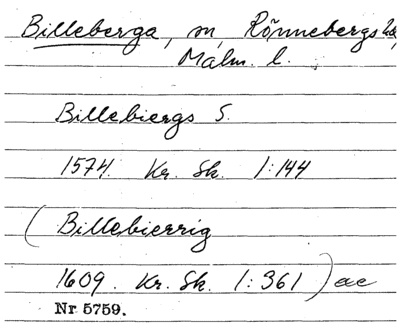 Billeberga, sn, Rönnebergs hd,
Malm. l.
Billebiergs S.
1574. Kr. Sk. 1:144
(Billebierrig
1609. Kr. Sk. 1:361) ac
Nr 5759.